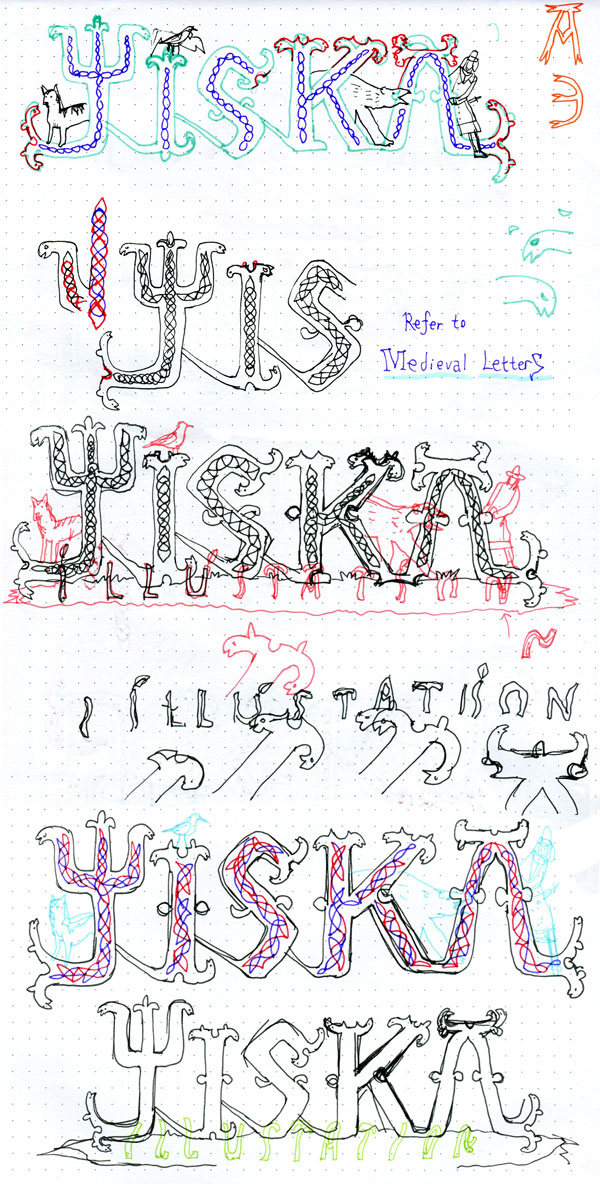 YISKA
A
YIS
Refer to
Medieval Letters
YISKA
ILLUSTATION
ILLUSTATION
YISKA
YISKA
ILLUSTATION